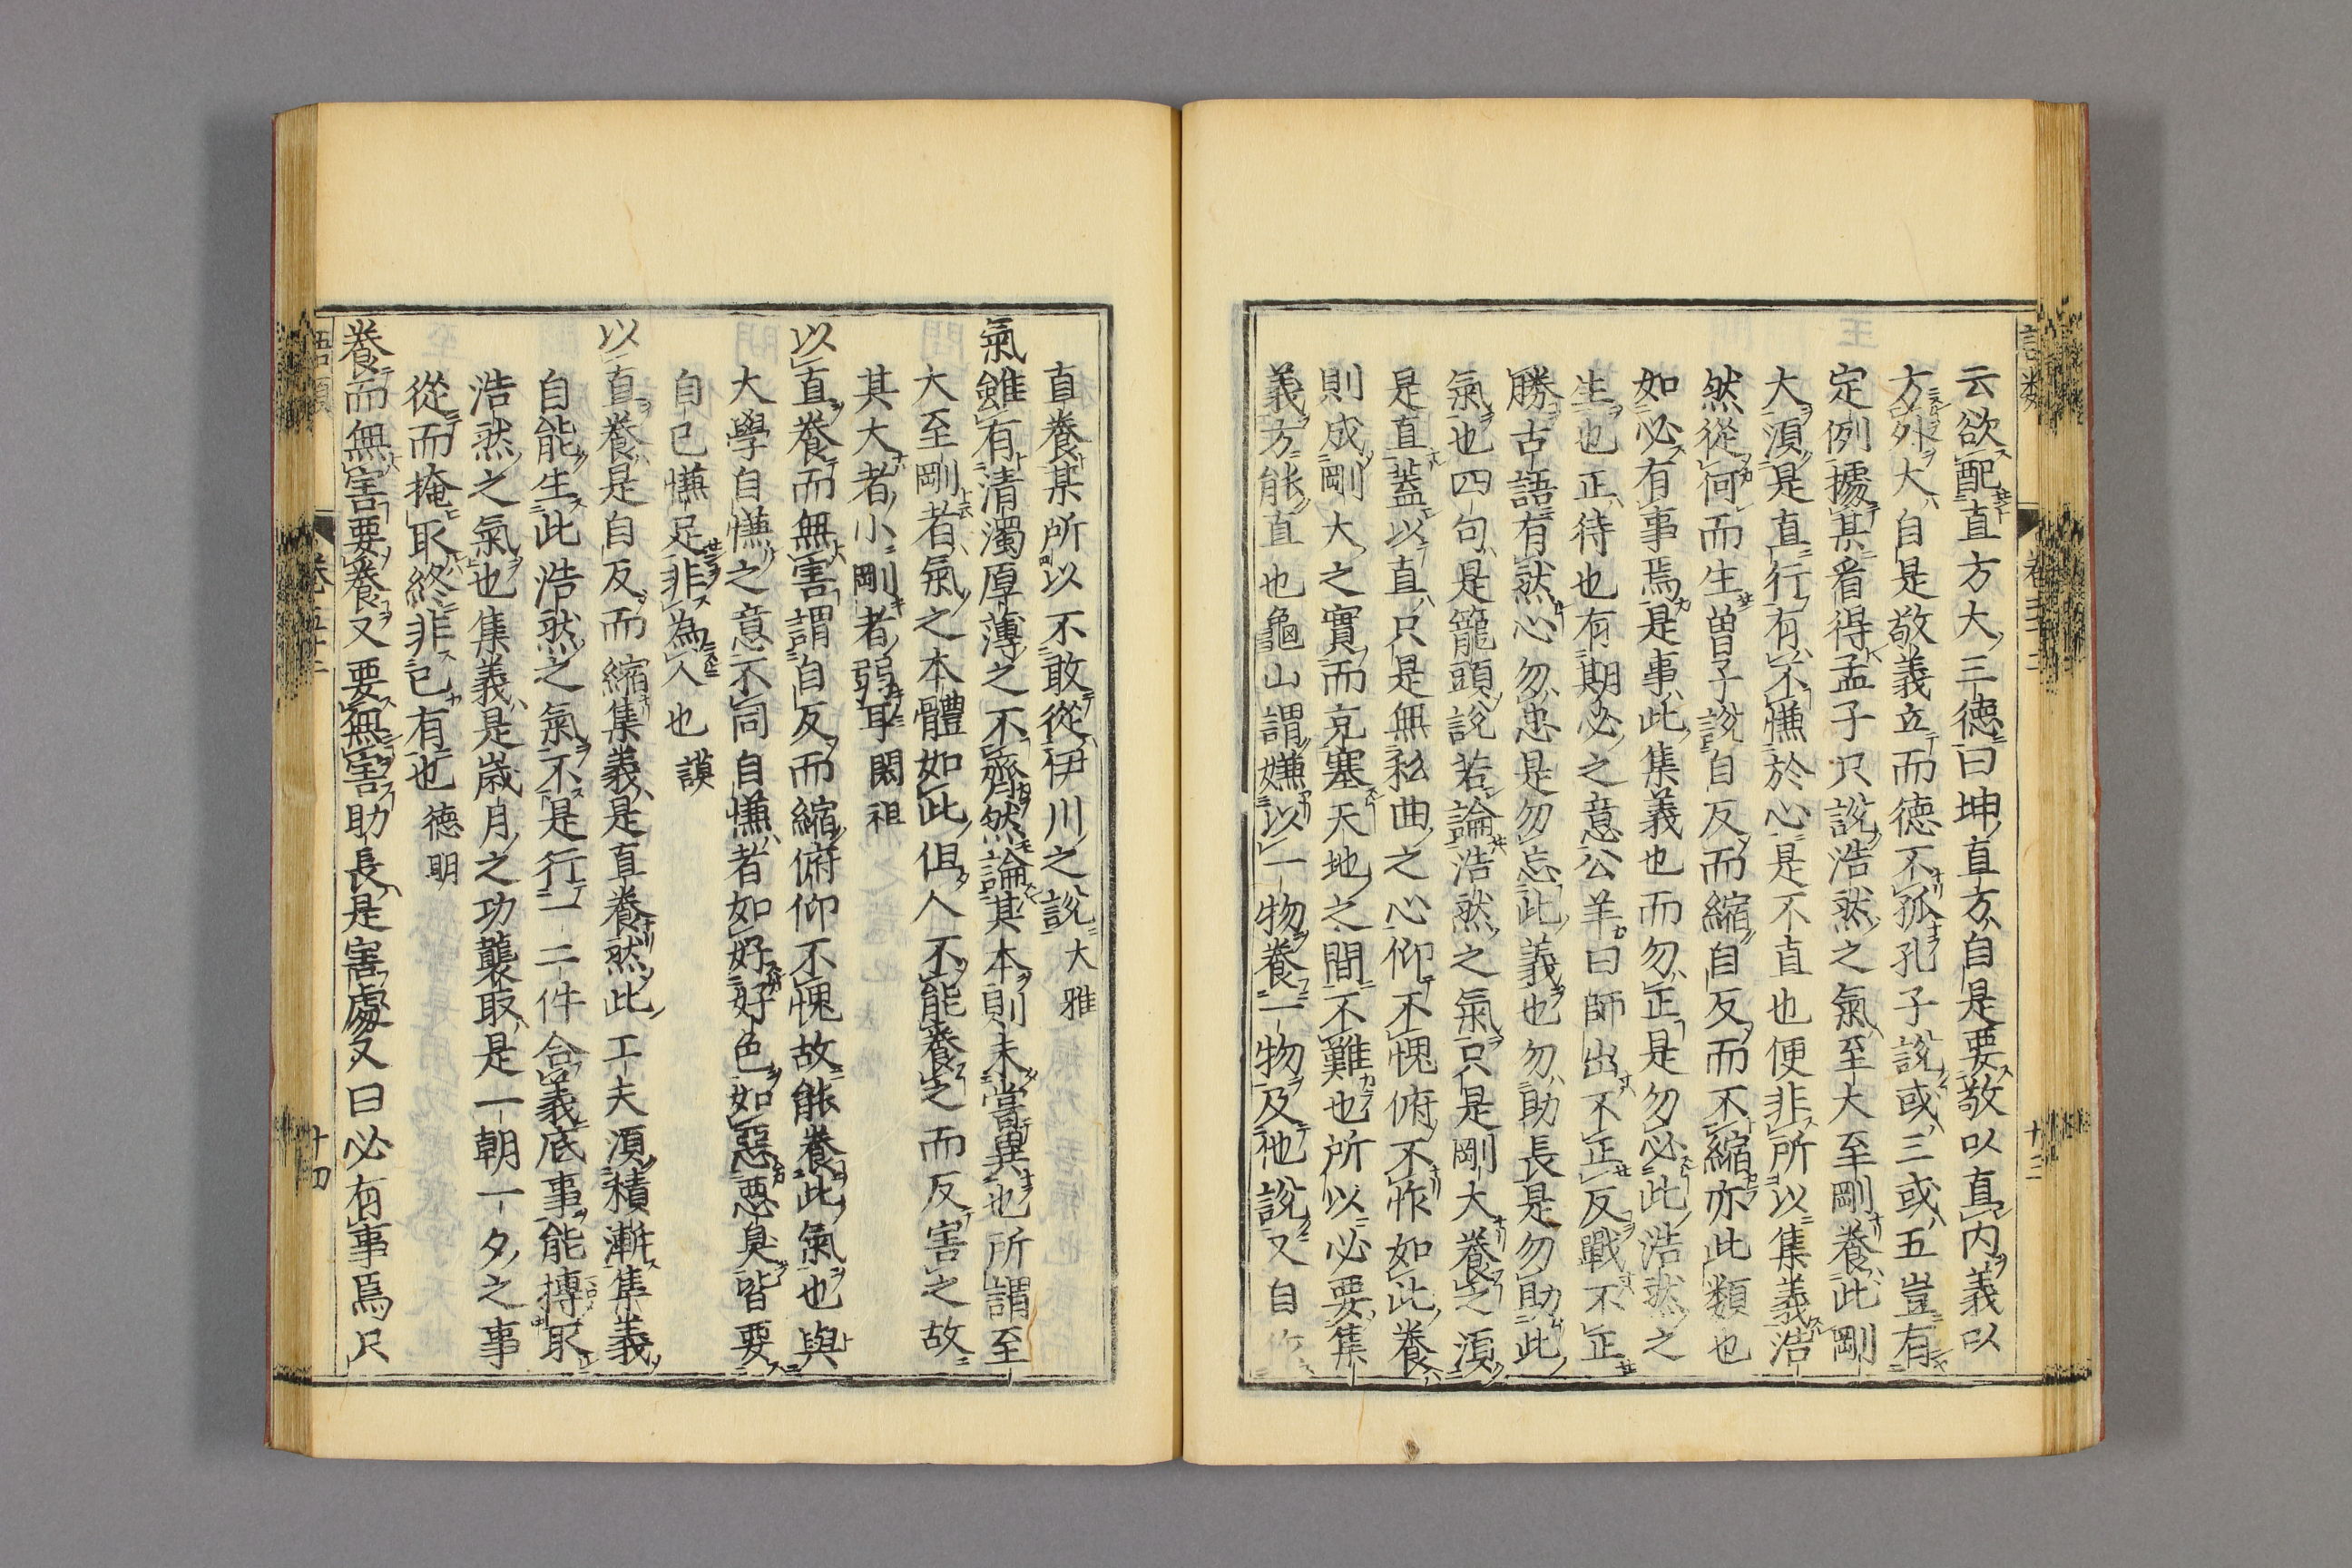 云欲配直方大三德曰坤直方自是要敬以直内義以
方外大自是敬義立而德不孤孔子說或三或五豈有
定例據某看得孟子只說浩然之氣至大至剛養此剛
大須是直行有不慊於心是不直也便非所以集義浩
然從何而生曾子說自反而縮自反而不縮亦此類也
如必有事焉是事此集義也而勿正是勿必此浩然之
生也正待也有期必之意公羊曰師出不正反戰不正
勝古語有然心勿忘是勿忘此義也勿助長是勿助此
氣也四句是籠頭說若論浩然之氣只是剛大養之須
是直蓋以直只是無私曲之心仰不愧俯不怍如此養
則成剛大之實而充塞天地之間不難也所以必要集
義方能直也龜山謂嫌以一物養一物及他說又自
直養某所以不敢從伊川之說大雅
氣雖有清濁厚薄之不齊然論其本則未嘗異也所謂至
大至剛者氣之本體如此但人不能養之而反害之故
其大者小剛者弱耳閎祖
以直養而無害謂自反而縮俯仰不愧故能養此氣也與
大學自慊之意不同自慊者如好好色如惡惡臭皆要
自己慊足非為人也謨
以直養是自反而縮集義是直養然此工夫須積漸集義
自能生此浩然之氣不是行一二件合義底事能搏取
浩然之氣也集義是歲月之功襲取是一朝一夕之事
從而掩取終非己有也德明
養而無害要養又要無害助長是害處又曰必有事焉只
語類
卷五十二
十四